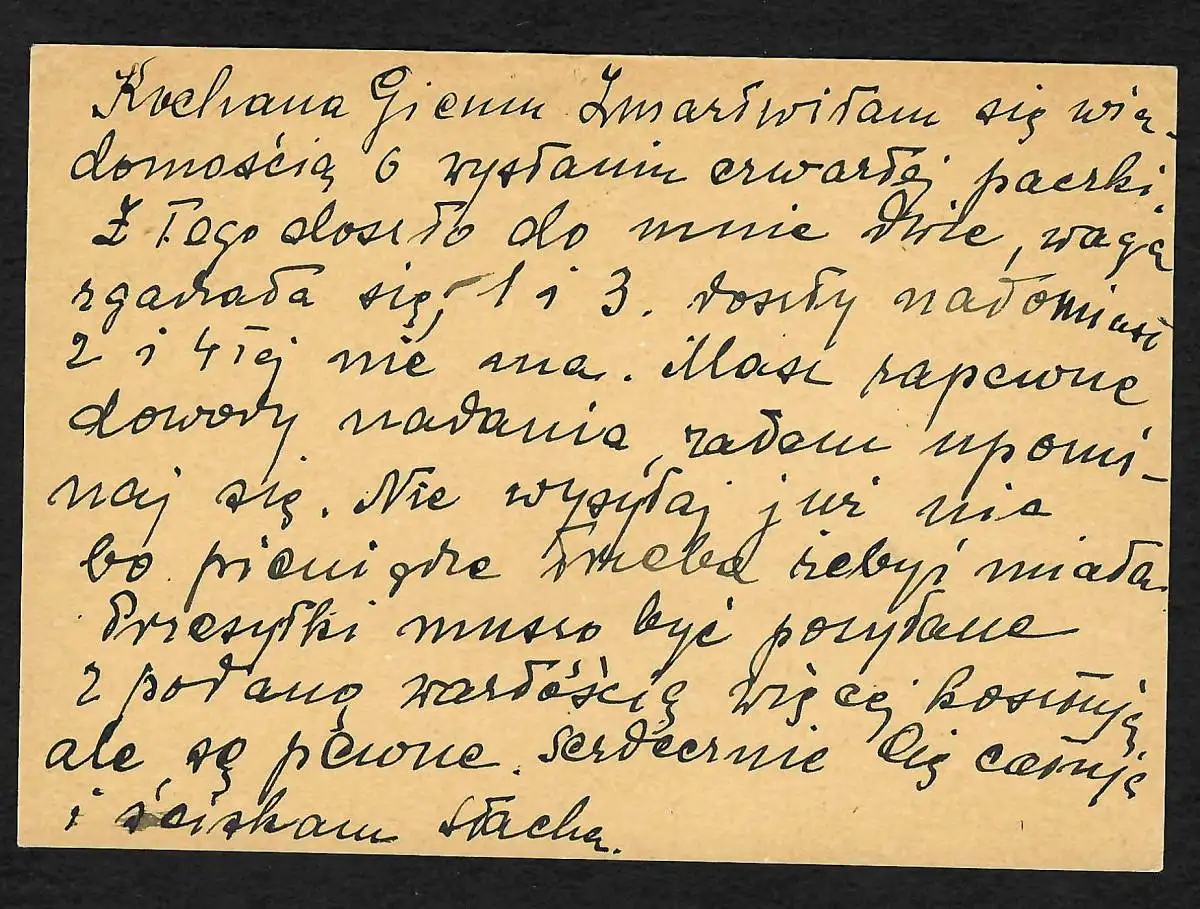 Kochana Gieniu Zmartwiłam się wia-
domością o wysłaniu czwartej paczki.
Z tego doszło do mnie dwie, waga
zgadzała się, 1 i 3. doszły natomiast
2 i 4tej nie ma. Masz zapewne
dowody nadania, zatem upomi-
naj się. Nie wysyłaj już nic
bo pieniądze trzeba żebyś miała.
Przesyłki muszą być posyłane
z podaną wartością więcej kosztują,
ale są pewne. Serdecznie Cię całuję
i ściskam Stacha.